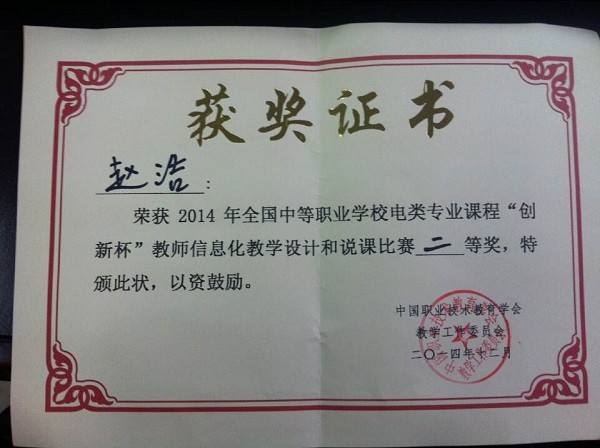 获奖证书
赵浩：
荣获 2014 年全国中等职业学校电类专业课程“创
新杯”教师信息化教学设计和说课比赛二等奖，特
颁此状，以资鼓励。
中国职业技术教育学会
教学工作委员会
二〇一四年十二月